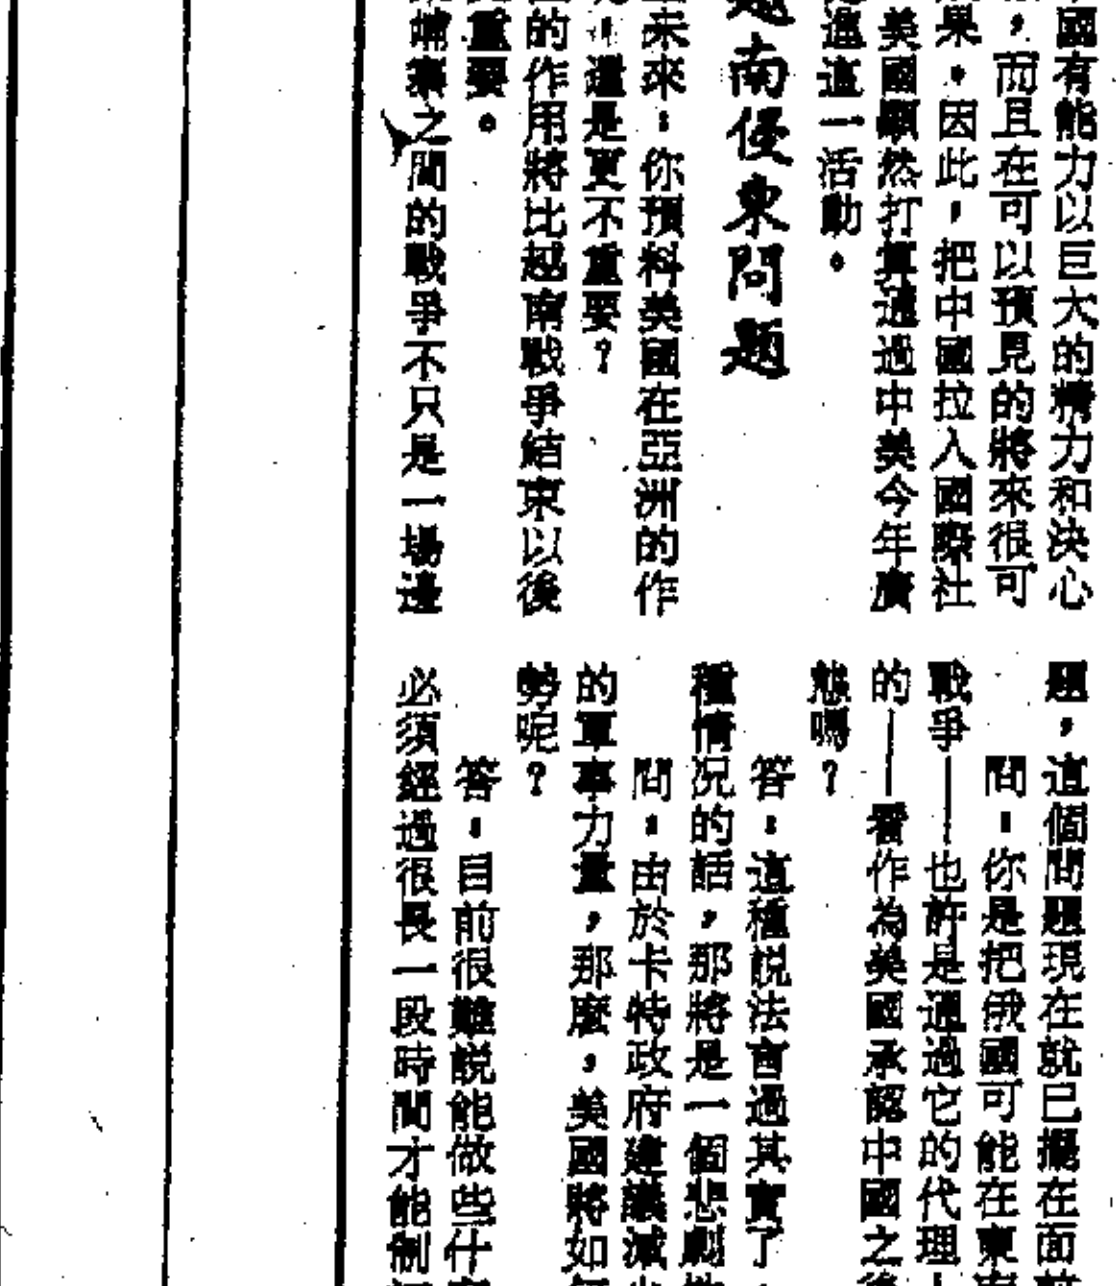 國有能力以巨大的精力和決心
，而且在可以預見的將來很可
果。因此，把中國拉入國際社
美國顯然打算通過中美今年廣
進這一活動。
越南侵柬問題
未來：你預料美國在亞洲的作
還是更不重要？
的作用將比越南戰爭結束以後
重要。
埔寨之間的戰爭不只是一場邊
題，這個問題現在就已擺在面
問：你是把俄國可能在東
戰爭——也許是通過它的代理
的——看作為美國承認中國之後
態嗎？
答：這種說法言過其實了。
種情况的話，那將是一個悲劇性
問：由於卡特政府建議減少
的軍事力量，那麼，美國將如
勢呢？
答：目前很難說能做些什
必須經過很長一段時間才能制